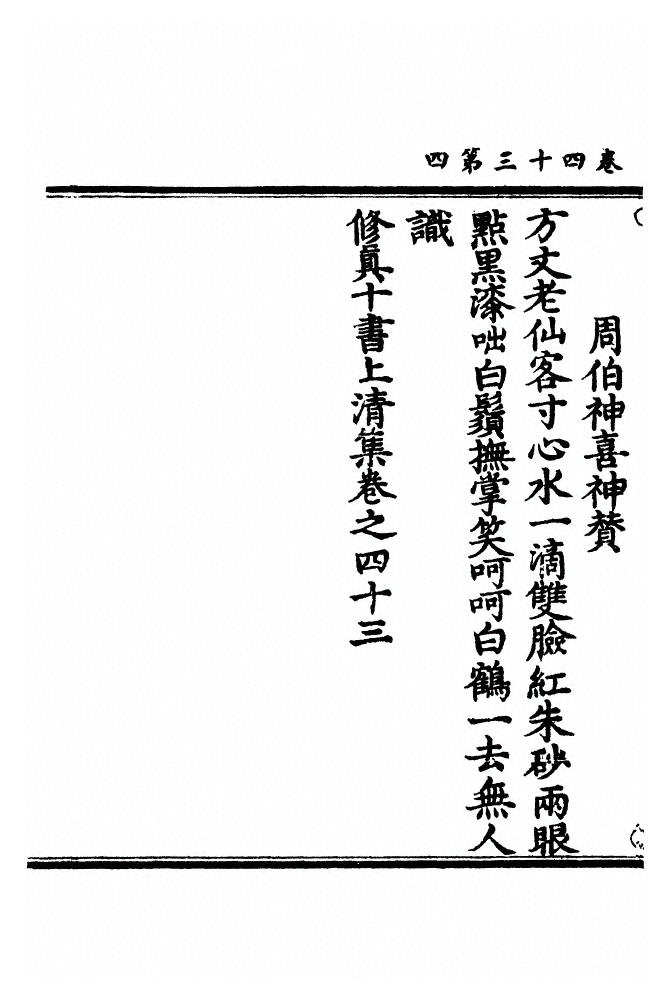 卷四十三第四
周伯神喜神賛
方丈老仙客寸心水一滴雙臉紅朱砂兩眼
點黑漆咄白鬚撫掌笑呵呵白鶴一去無人
識
修真十書上清集卷之四十三